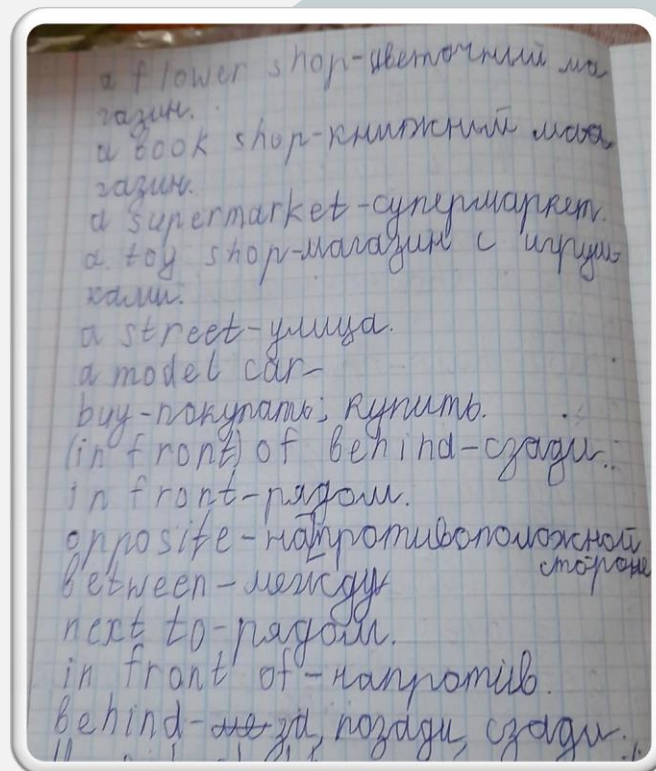 a flower shop-цветочный ма
газин.
a book shop-книжный мага
газин.
a supermarket-супермаркет.
a toy shop-магазин с игруш-
ками.
a street-улица.
a model car-
buy-покупать; купить.
(in front) of behind-сзади.
in front-рядом.
opposite-на противоположной
стороне
between-между
next to-рядом.
in front of-напротив.
behind-за, позади, сзади.